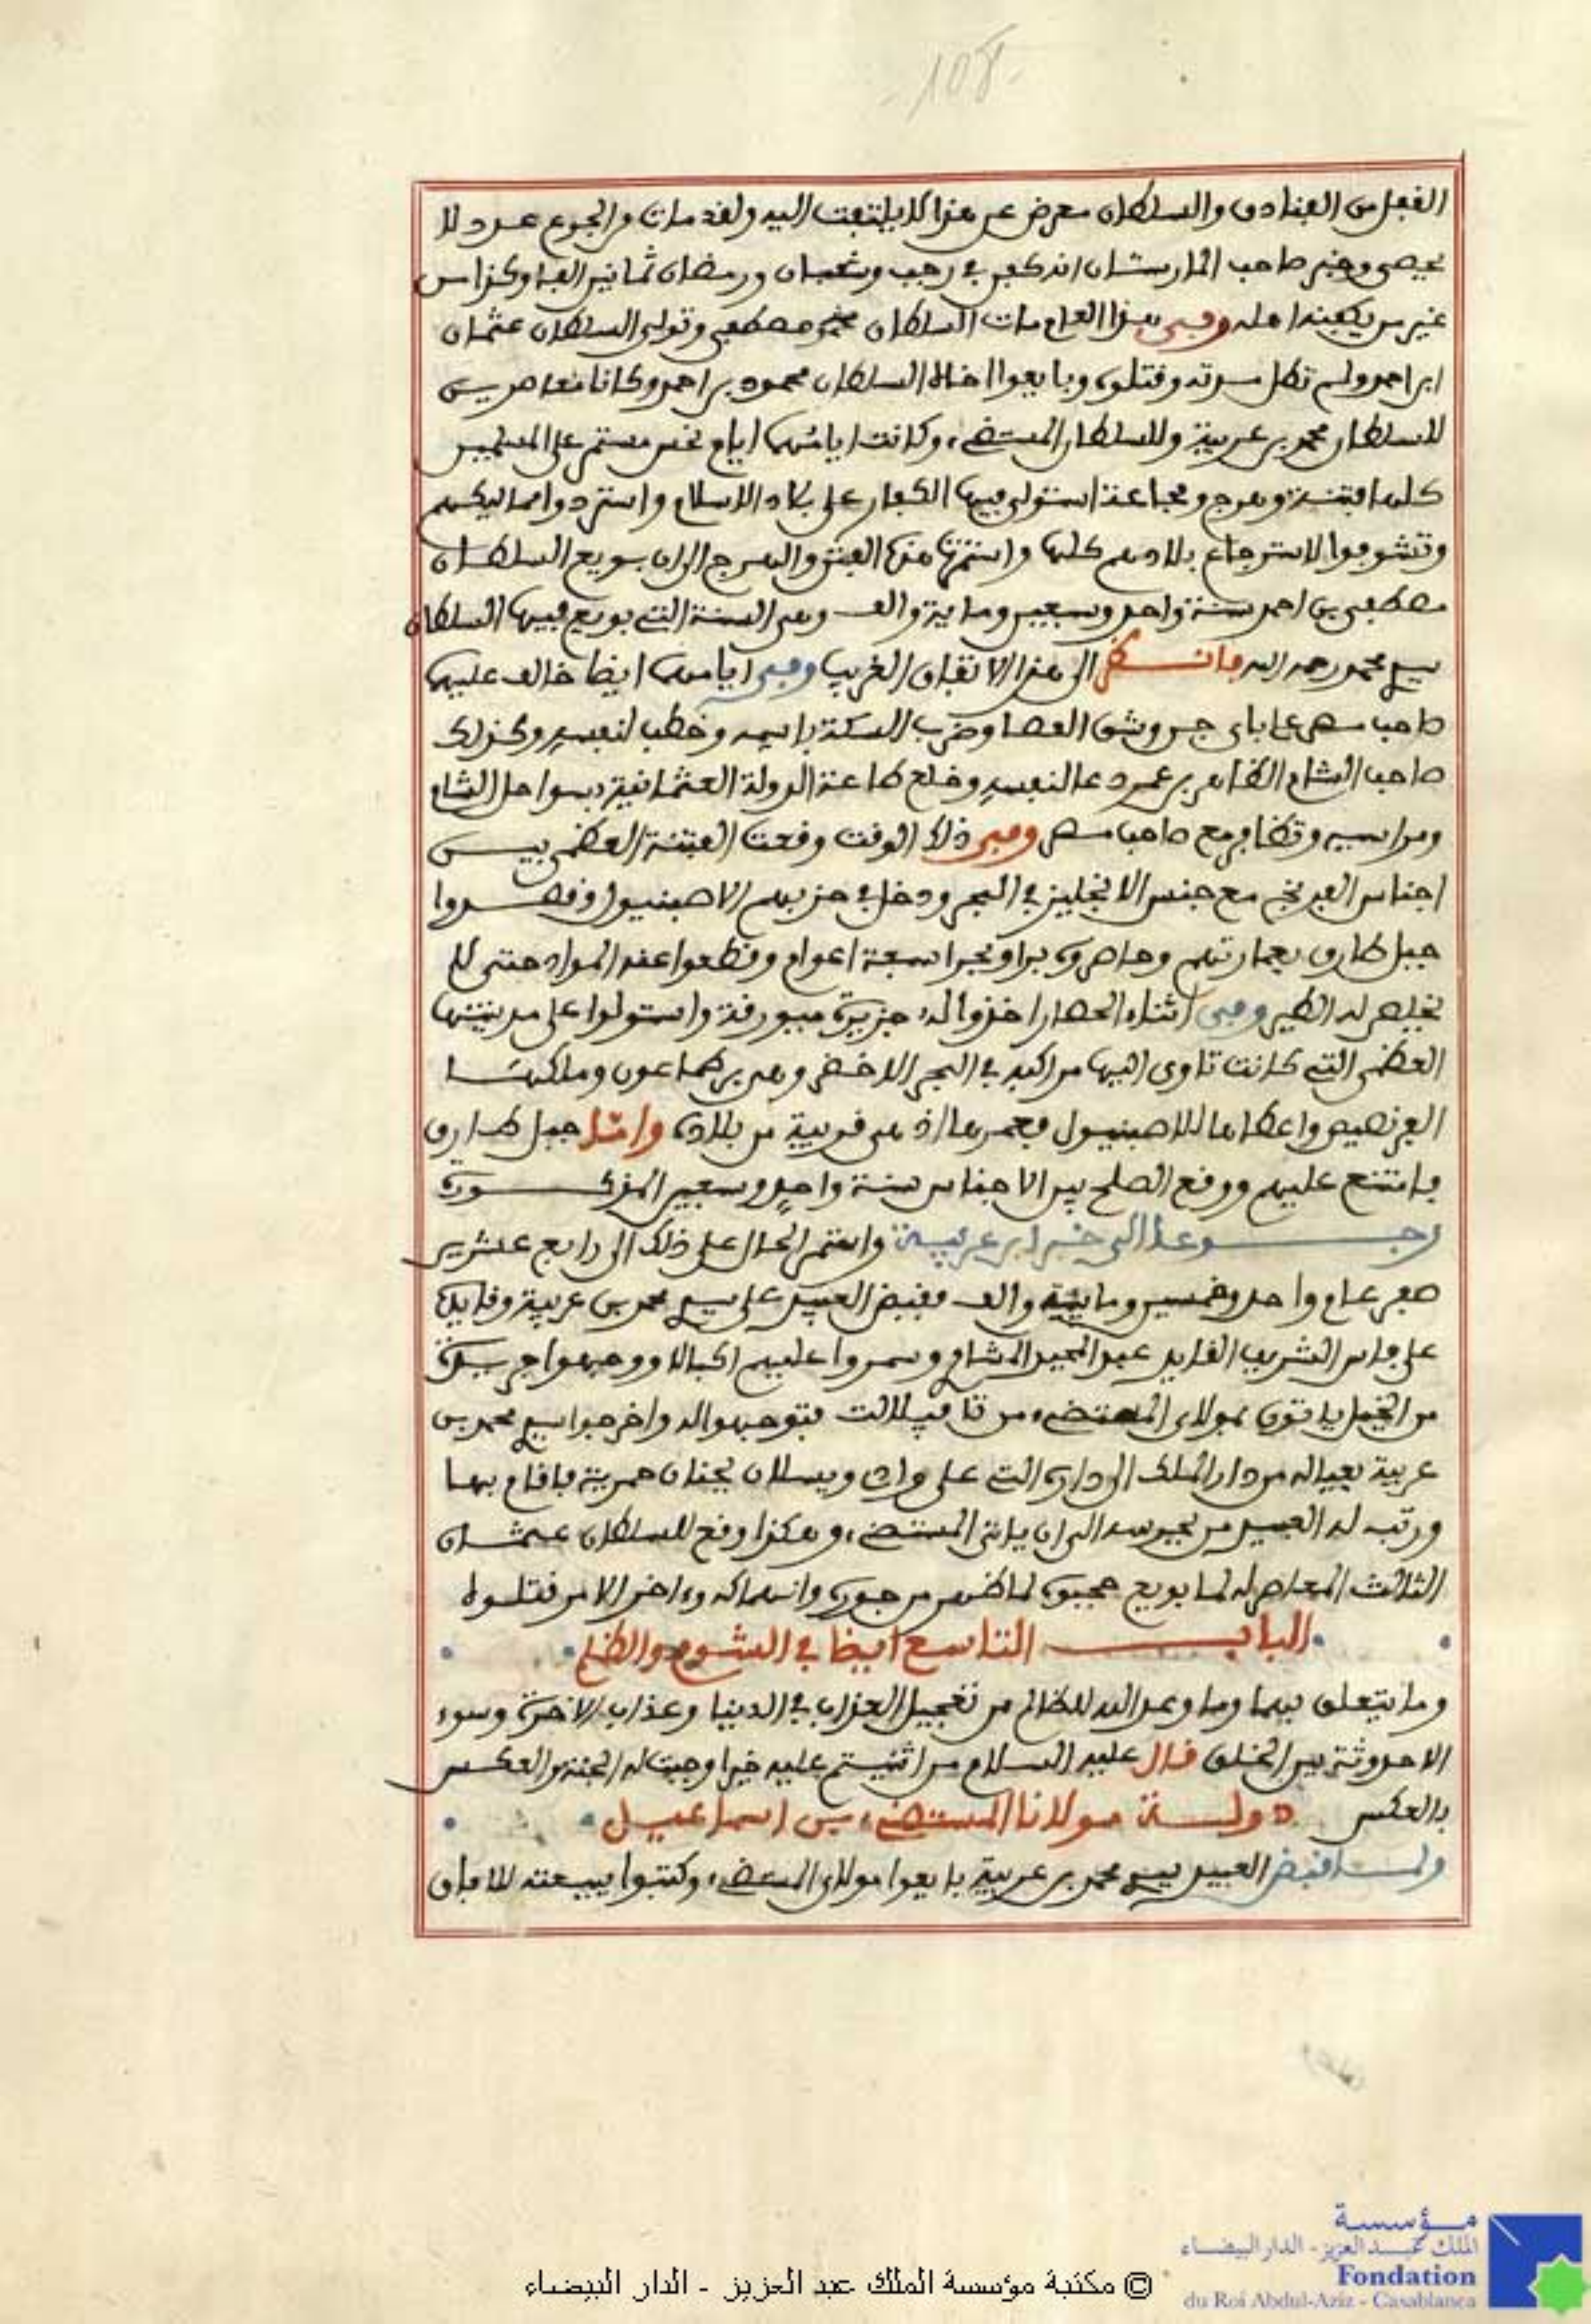 108
الفعل من الفنادق والسلطان معرض عن هذا لا يلتفت اليه ولقد مات من الجوع عدد لا
يحصى وخبر صاحب المارستان انه كفن في رجب وشعبان ورمضان ثمانين الفا وكذا من
غير من يكفنه اهله وفي هذا العام مات السلطان مصطفى وتولى السلطان عثمان
ابن احمد ولم تطل مدته وقتلوه وبايعوا اخاه السلطان محمود بن احمد وكانا معاصرين
للسلطان محمد بن عربية وللسلطان المستضيء وكانت ايامهما ايام نحس مستمر على المسلمين
كلها فتنة وهرج ومجاعة استولى فيها الكفار على بلاد الاسلام واستردوا
وتشوفوا لاسترجاع بلادهم كلها والهرج الى ان بويع السلطان
مصطفى بن احمد سنة واحد وسبعين وماية والف وهي السنة التي بويع فيها السلطان
سي محمد رحمه الله فانظر الى هذا الاتفاق الغريب وفي ايامهما ايضا خالف عليهما
صاحب مصر علي باي وشق العصا وضرب السكة باسمه وخطب لنفسه وكذلك
صاحب الشام الظاهر بن عمر دعا لنفسه وخلع طاعة الدولة العثمانية بسواحل الشام
ومراسيه وتظافر مع صاحب مصر وفي ذلك الوقت وقعت الفتنة العظمى بين
اجناس الفرنج مع جنس الانجليز في البحر ودخل في حزبهم الاصبنيول وقصدوا
جبل طارق بعمارتهم وحاصروه برا وبحرا سبعة اعوام وقطعوا عنه المواد حتى لا
يخلص له الطير وفي اثناء الحصار اخذوا له جزيرة ميورقة واستولوا على مدينتها
العظمى التي كانت تاوى اليها مراكبه في البحر الاخضر وهي برطماعون وملكها
الفرنصيص واعطاها للاصبنيول فعمرها اذ هي قريبة من بلاده واما جبل طارق
فامتنع عليهم ووقع الصلح بين الاجناس سنة واحد وسبعين المذكورة
رجوعا الى خبر ابن عربية واستمر الحال على ذلك الى رابع عشرين
صفر عام واحد وخمسين وماية والف فقبض العبيد على سي محمد بن عربية وقايده
على فاس الشريف القايد عبد المجيد المشامري وسمروا عليهم الكبال ووجهوا جريدة
من الخيل ياتون بمولاي المستضيء من تافيلالت فتوجهوا له واخرجوا سي محمد بن
عربية بعياله من دار الملك الى داره التي على واد ويسلان بجنان حمرية فاقام بها
ورتب له العبيد من يحرسه الى ان ياتي المستضيء وهكذا وقع للسلطان عثمان
الثالث المعاصر له لما بويع حجبوه لما ظهر من جوره وانهماكه وءاخر الامر قتلوه
الباب التاسع ايضا في الشوم والظلم
وما يتعلق بهما وما وعد الله للظالم من تعجيل العذاب في الدنيا وعذاب الاخرة وسوء
الاحدوثة بين الخلق قال عليه السلام من اثنيتم عليه خيرا وجبت له الجنة والعكس
بالعكس دولة مولانا المستضيء بن اسماعيل
ولما قبض العبيد سي محمد بن عربية بايعوا مولاي المستضيء وكتبوا ببيعته للافاق
© مكتبة مؤسسة الملك عبد العزيز - الدار البيضاء
مؤسسة
الملك عبد العزيز - الدار البيضاء
Fondation
du Roi Abdul-Aziz - Casablanca